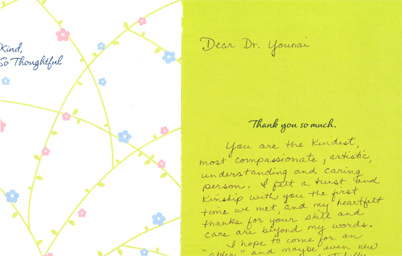 Kind,
So Thoughtful
Dear Dr. Younai
Thank you so much.
You are the kindest,
most compassionate, artistic,
understanding and caring
person. I felt a trust and
kinship with you the first
time we met and my heartfelt
thanks for your skill and
care are beyond my words.
I hope to come for an
"after" and maybe even new